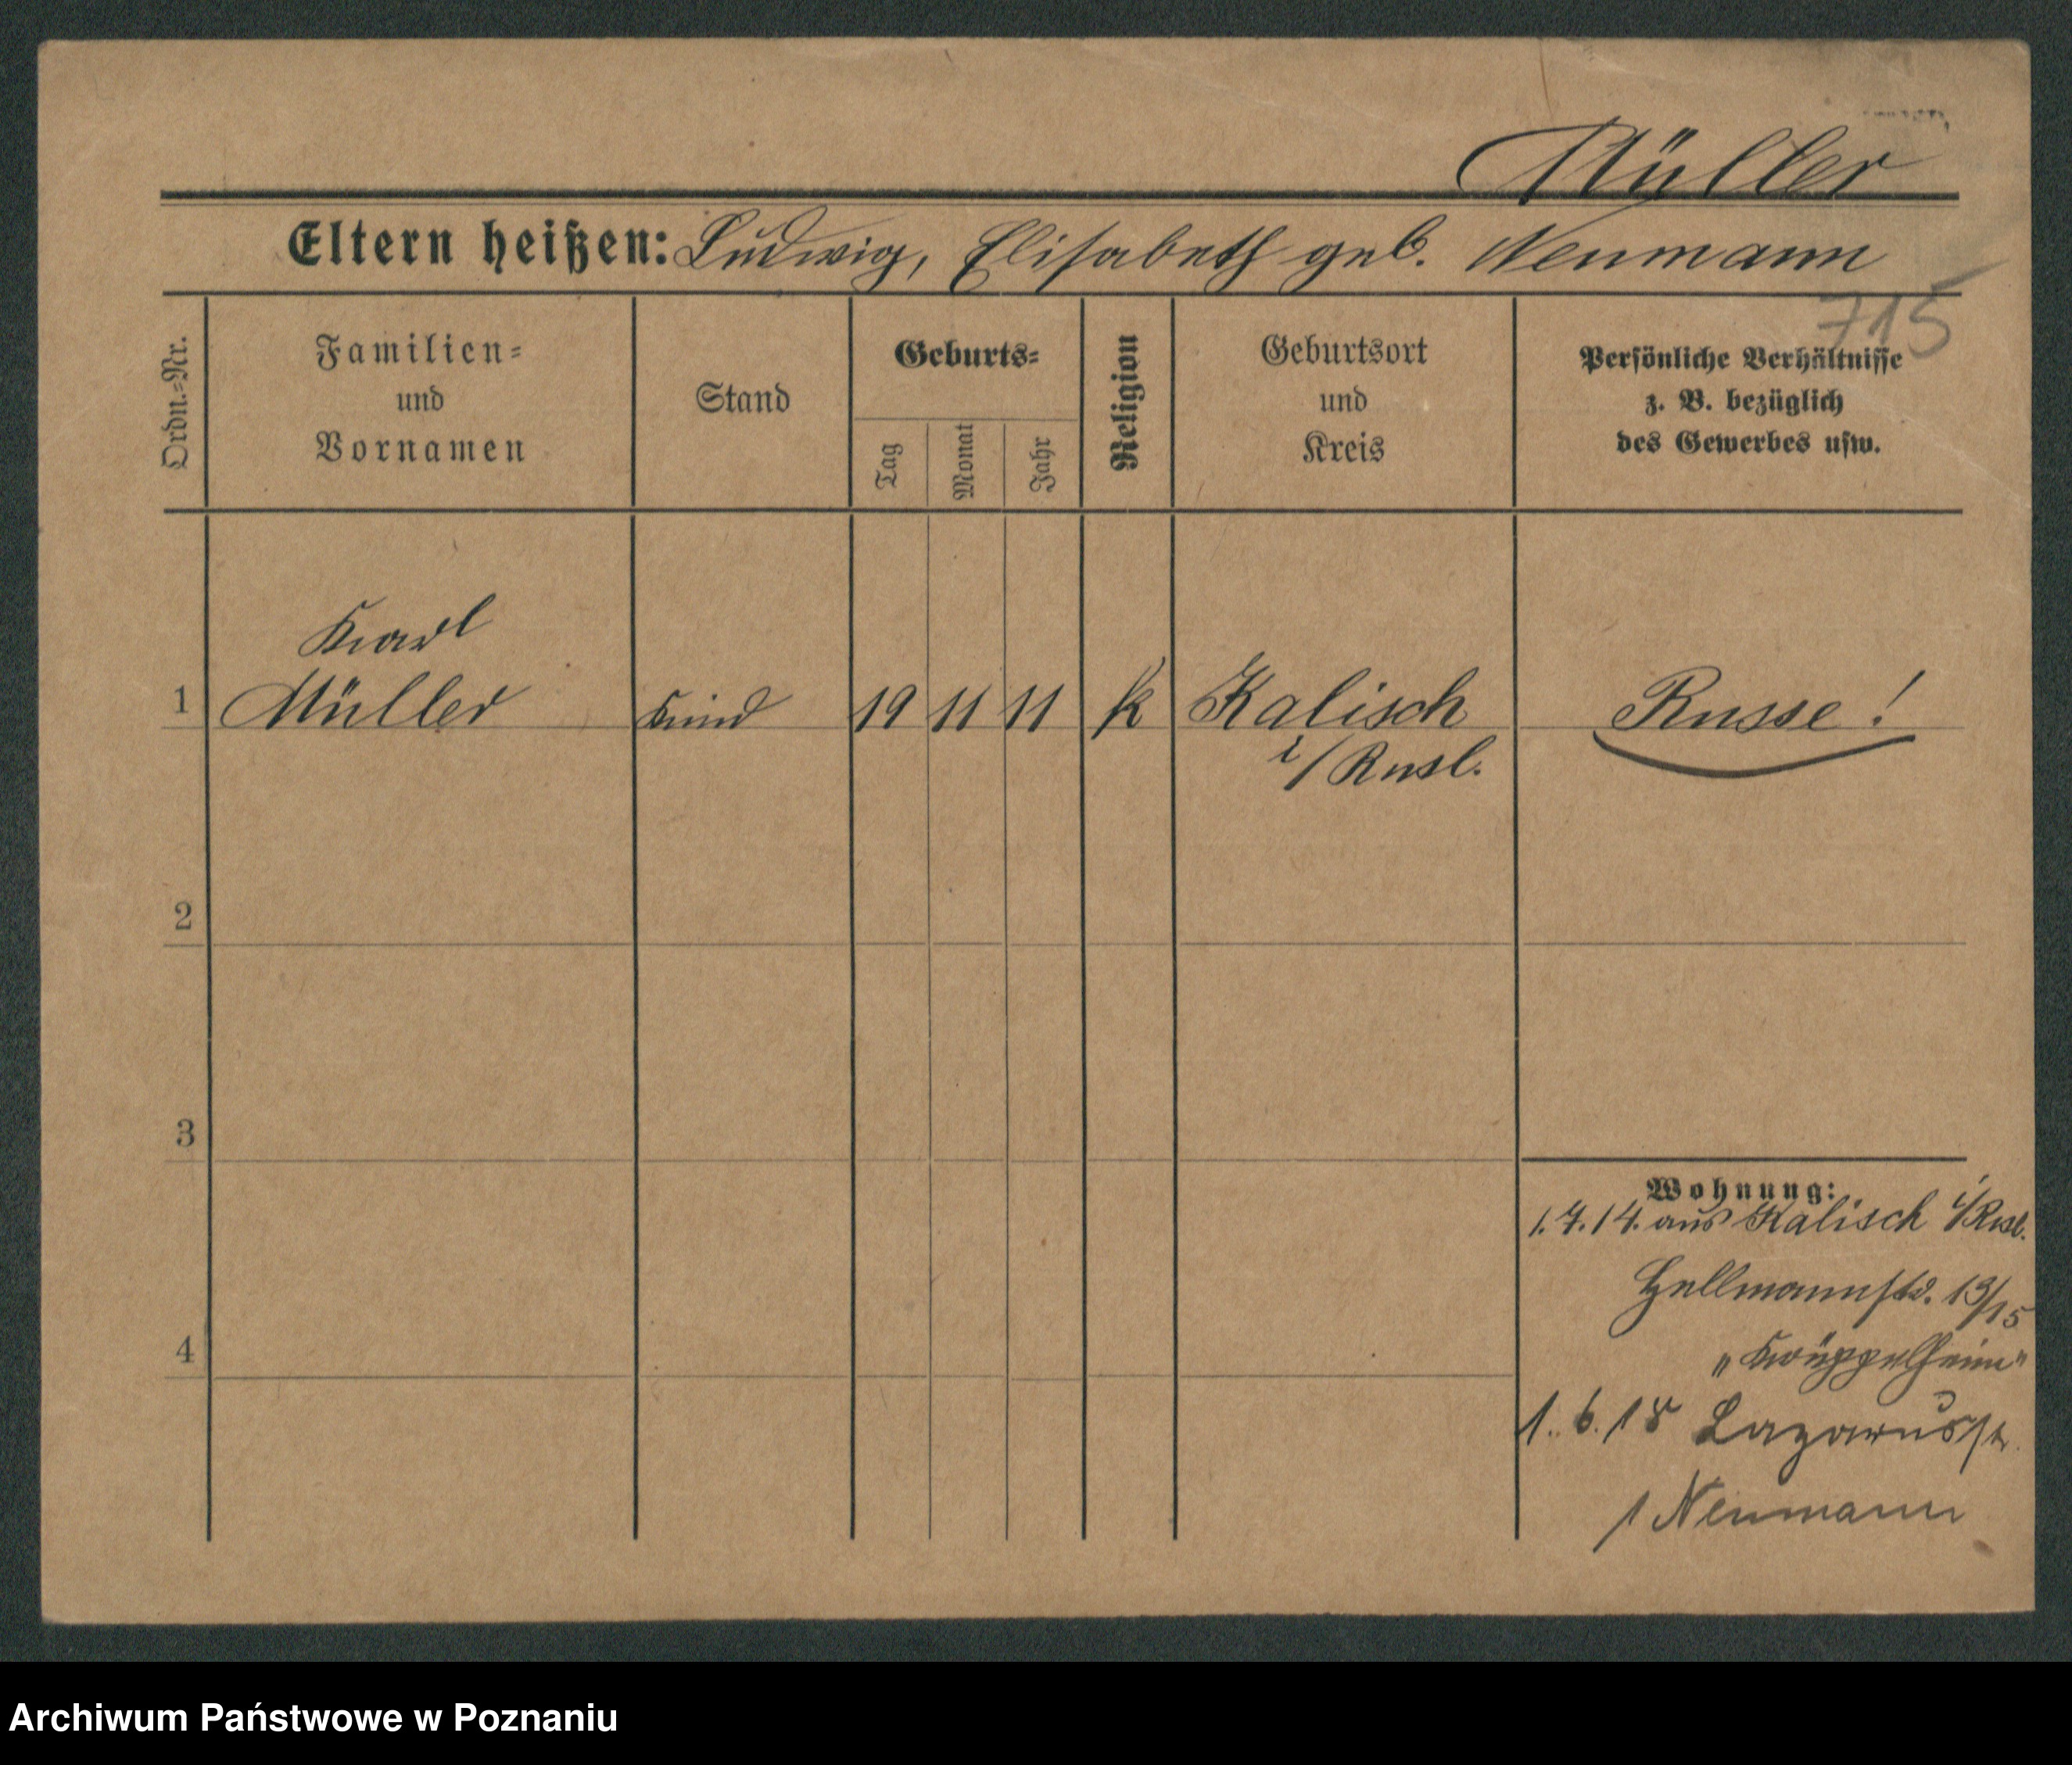 Müller
Eltern heißen: Ludwig, Elisabeth geb. Neumann
715
Ordn.=Nr.
Familien=
und
Vornamen
Stand
Geburts=
Tag
Monat
Jahr
Religion
Geburtsort
und
Kreis
Persönliche Verhältnisse
z. B. bezüglich
des Gewerbes usw.
Karl
1 Müller Kind 19 11 11 k Kalisch Russe!
i/Rusl.
2
3
4
Wohnung:
1.7.14. aus Kalisch i/Rusl.
Hellmannstr. 13/15
"Krüppelheim"
1.6.18 Lazarusstr.
1 Neumann
Archiwum Państwowe w Poznaniu